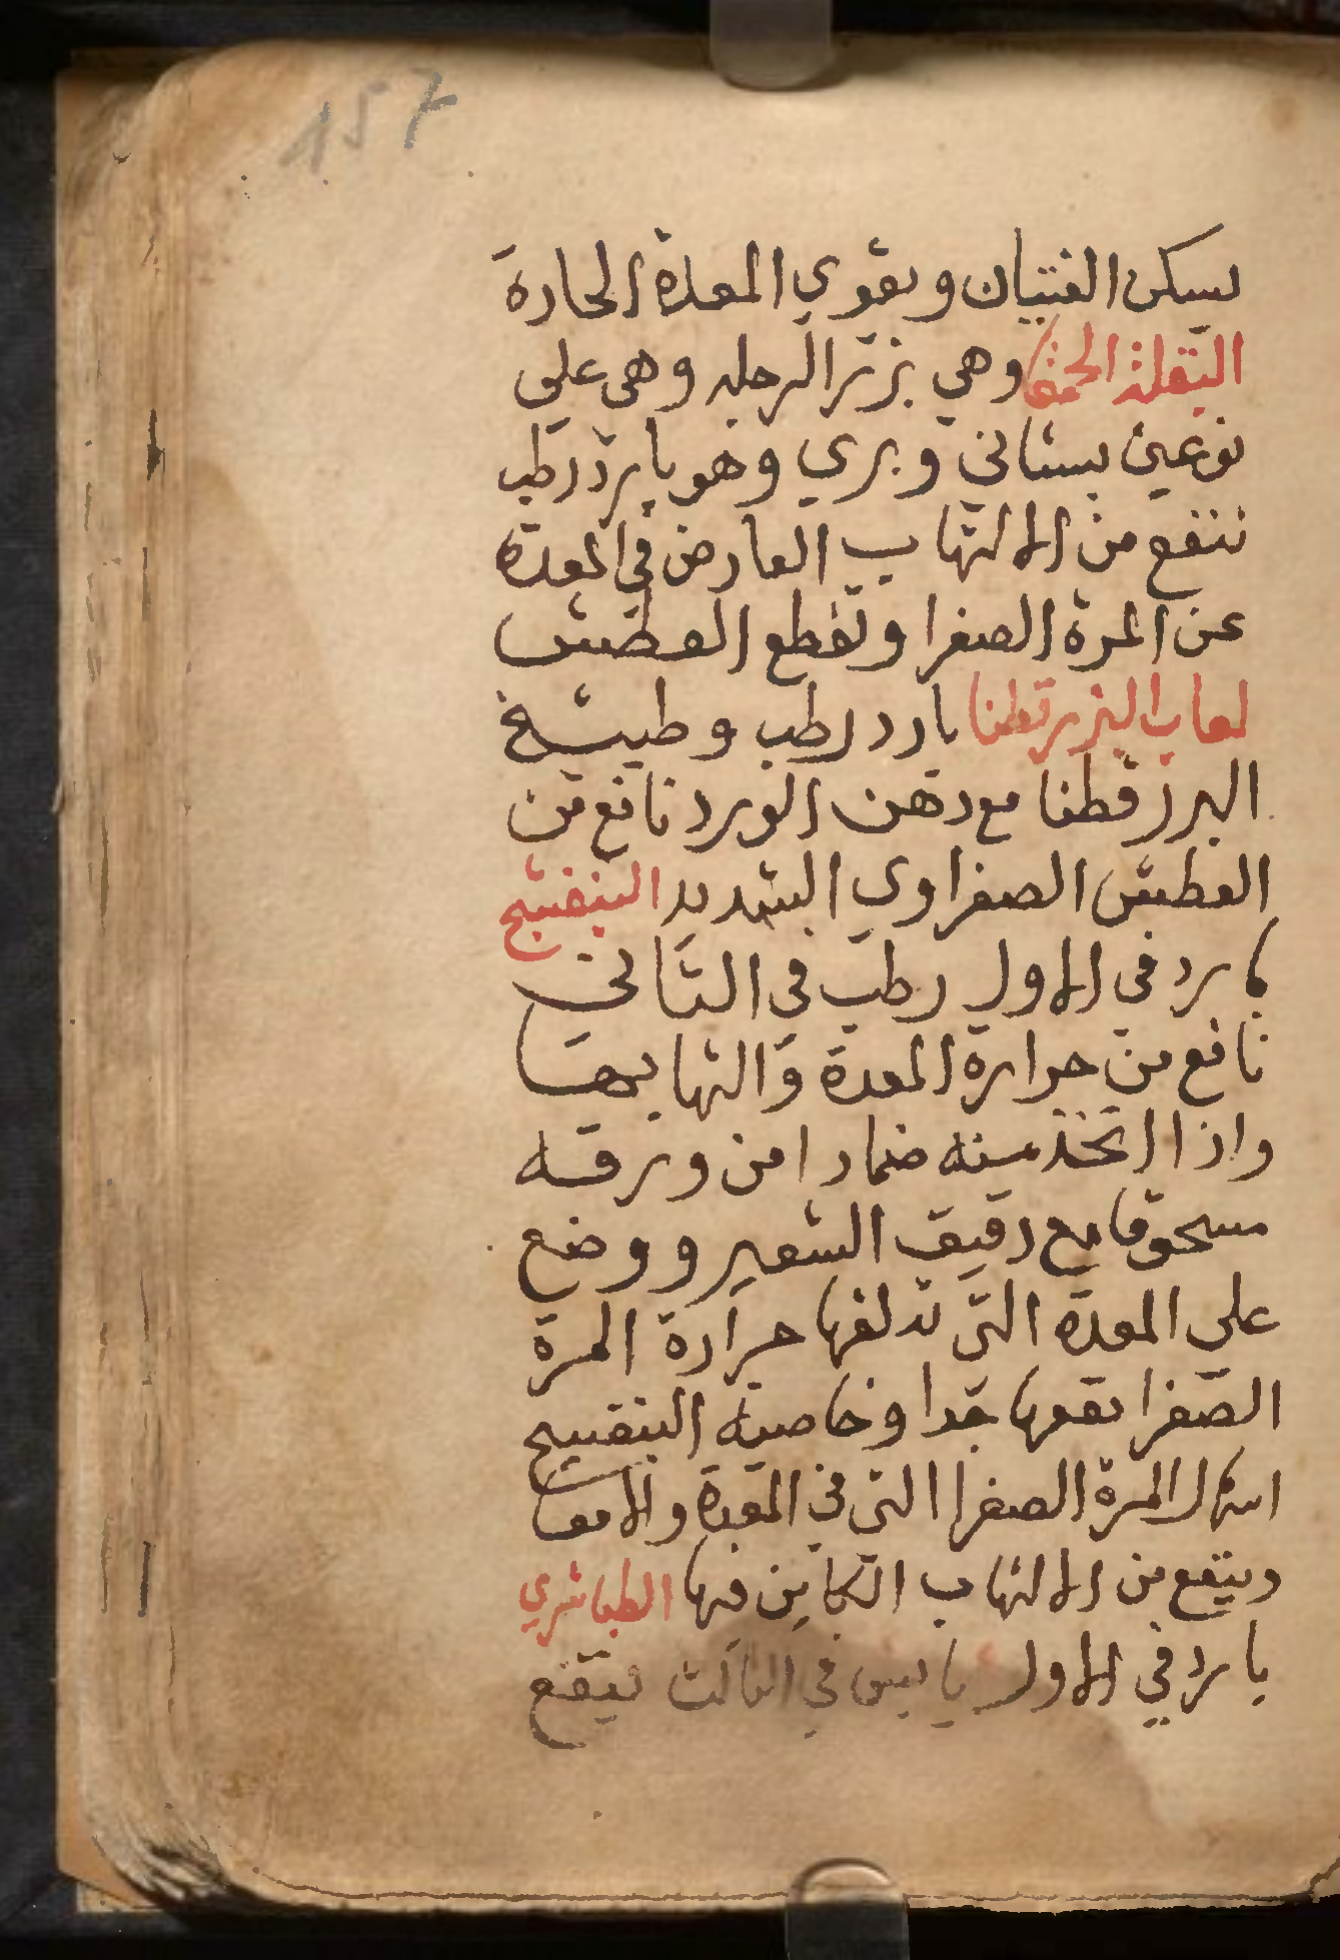 157
يسكن الغثيان ويقوي المعدة الحارة
البقلة الحمقا وهي بزر الرجله وهي علي
نوعين بستاني وبري وهو بارد رطب
تنفع من الالتهاب العارض في المعدة
عن المرة الصفرا وتقطع العطش
لعاب البزرقطنا بارد رطب وطبيخ
البزرقطنا مع دهن الورد نافع من
العطش الصفراوي الشديد البنفسج
بارد في الاول رطب في الثاني
نافع من حرارة المعدة والتهابها
واذا اتخذ منه ضمادا من ورقه
مسحوقا مع دقيق الشعير ووضع
علي المعدة التي تدلغها حرارة المرة
الصفرا نفعها جدا وخاصية البنفسج
اسهال المرة الصفرا التي في المعدة والامعا
وينفع من الالتهاب الكاين فيها الطباشري
بارد في الاول يابس في الثالث ينفع